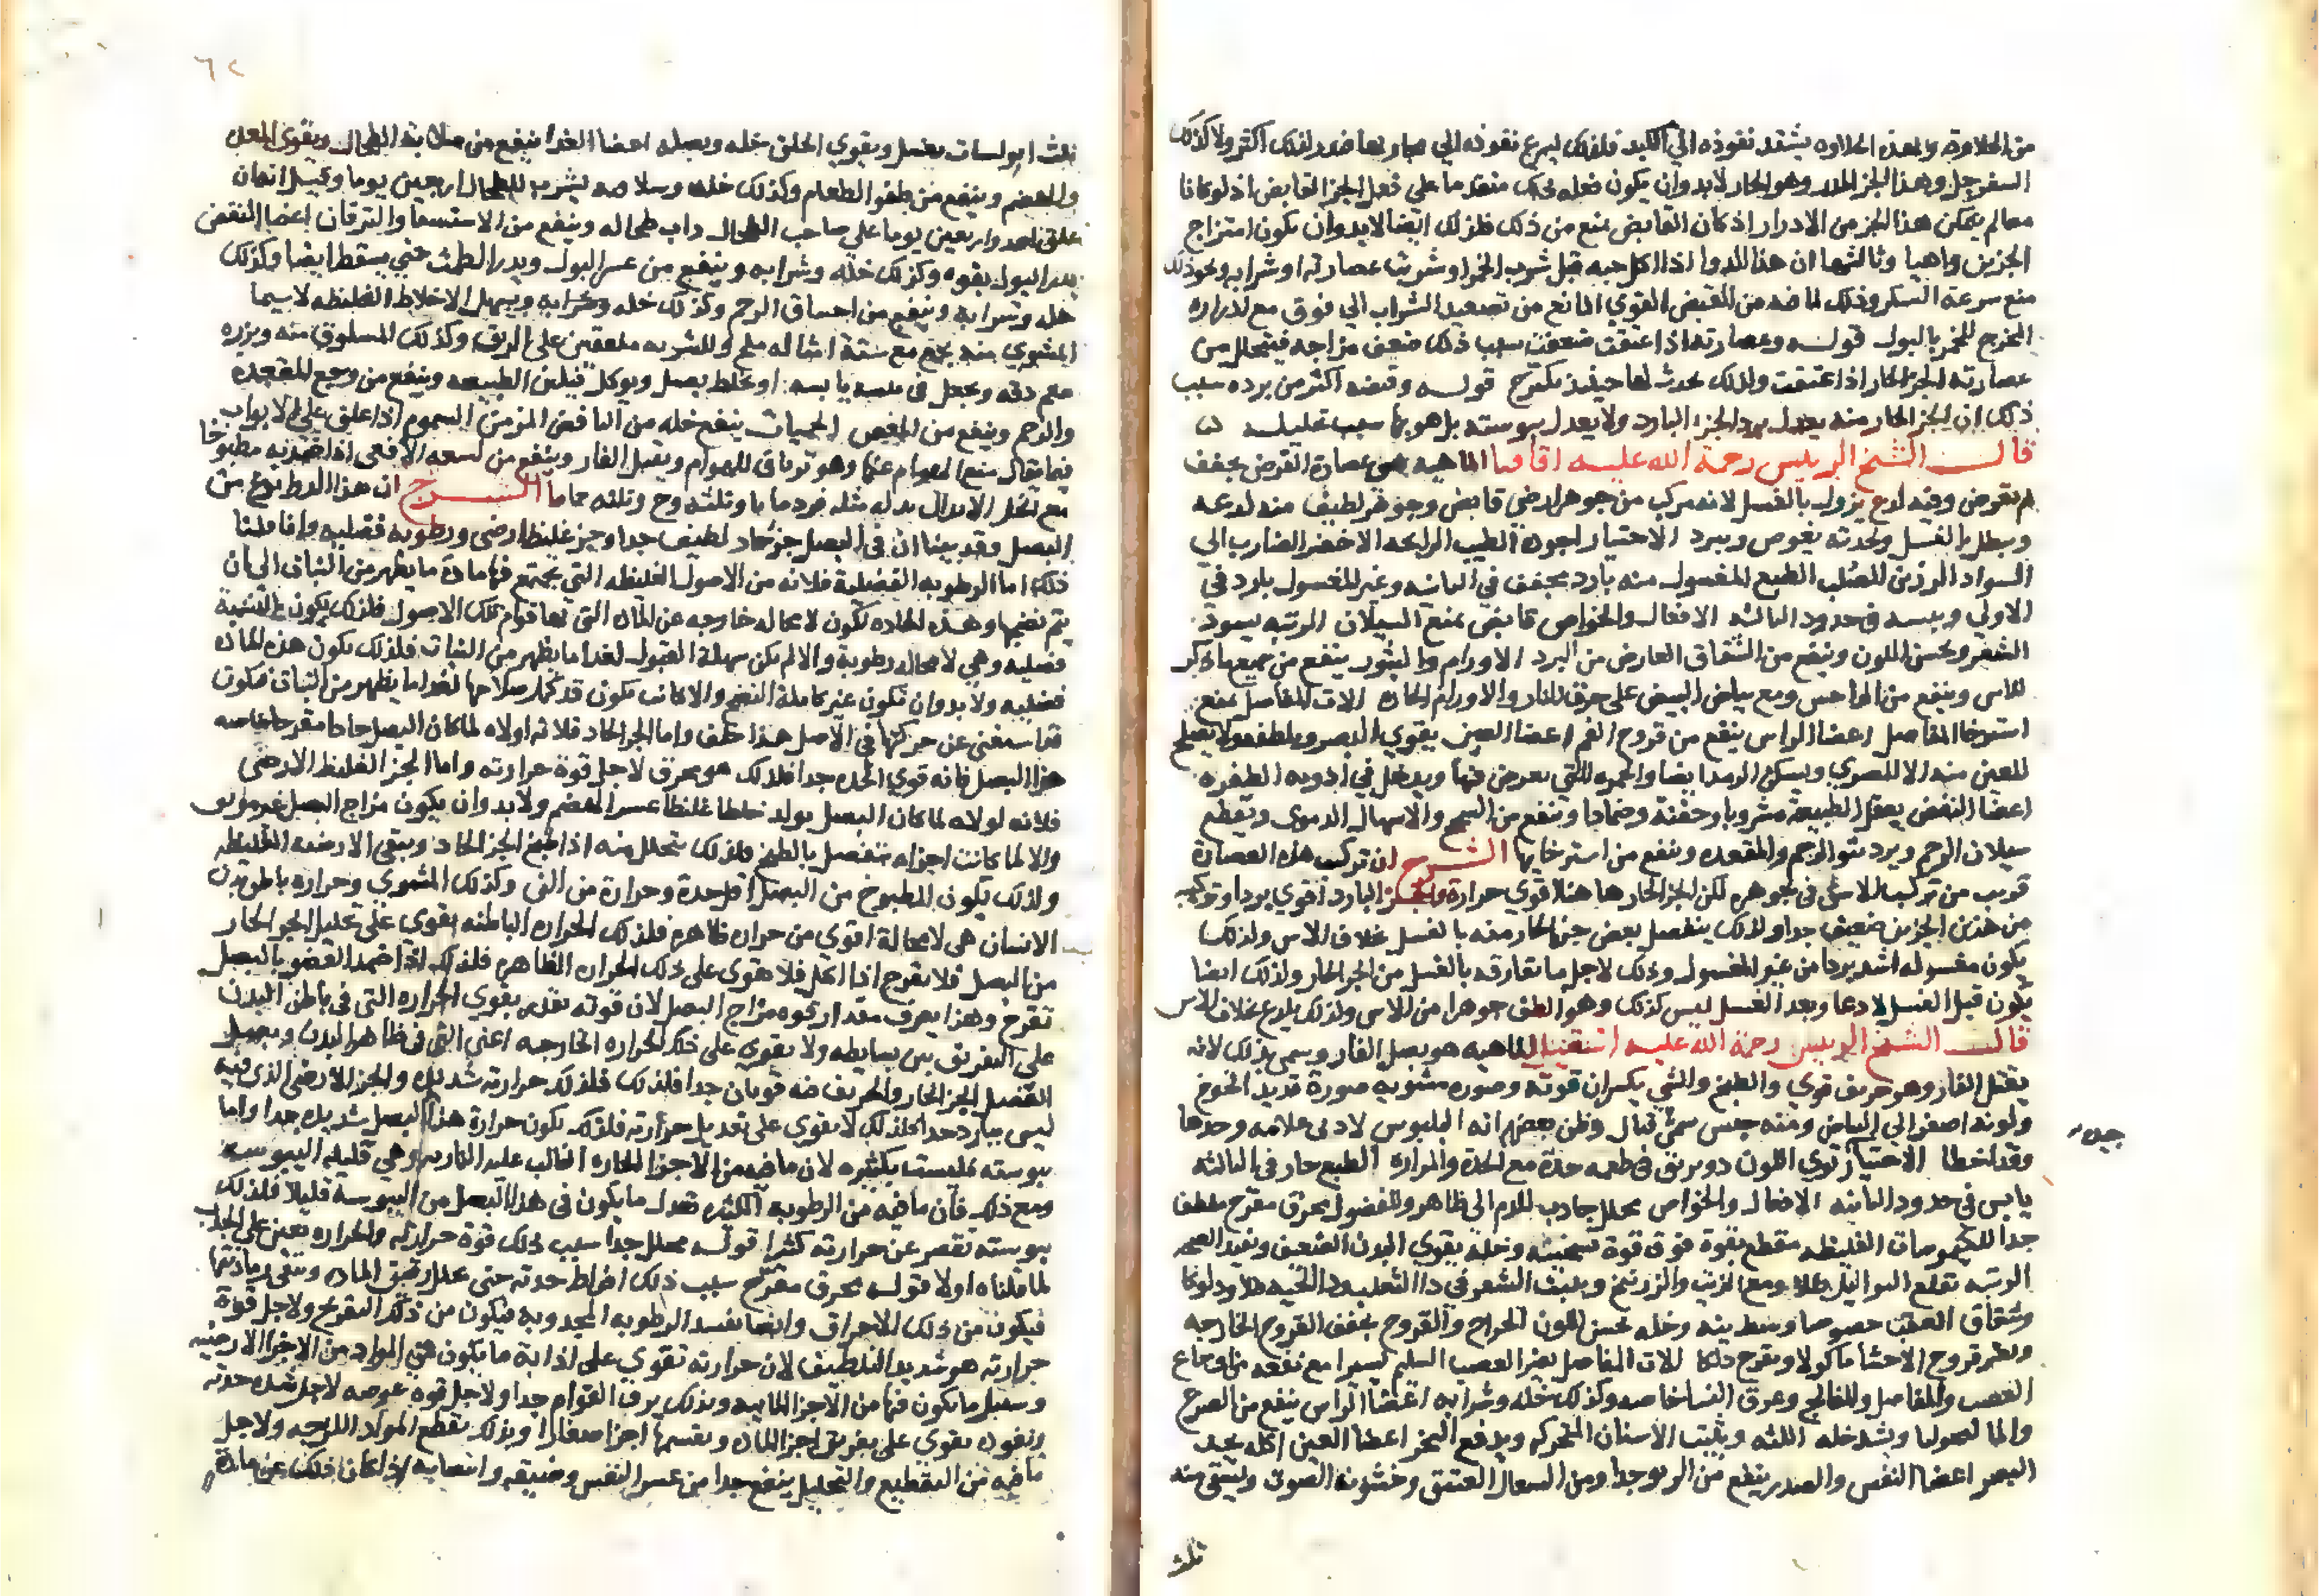 من الحلاوة ولهذه الحلاوه يشتد نفوذه الي الكبد فلذلك يسرع نفوذه الي
السفرجل وهذا الجز المدر وهو الحار لابد وان يكون فعله متقدما علي فعل الجز القابض اذ لو كانا
معا لم يتمكن هذا الجز من الادرار اذ كان القابض يمنع من ذلك فلذلك ايضا لابد وان يكون امتزاج
الجزين واهيا وثالثها ان هذا الدوا اذا اكل حبه قبل شرب الخمر او شربت عصارته او شرابه ونحو ذلك
منع سرعة السكر وذلك لما فيه من القبض القوي المانع من تصعيد الشراب الي فوق مع ادراره
المخرج للخمر بالبول قوله وعصارته اذا عتقت ضعفت سبب ذلك ضعف مزاجه فيتحلل من
عصارته الجز الحار اذا عتقت ولذلك يحدث لها حينئذ قوله وقبضه اكثر من برده سبب
ذلك ان الجز الحار منه يعدل برد الجز البارد ولا يعدل يبوسته بل هو بها سبب تحليله
قال الشيخ الرييس رحمة الله عليه اقاقيا الماهيه هي عصارة القرض يجفف
ثم يقرض وفيه لدع يزول بالغسل لانه مركب من جوهر ارضي قابض وجوهر لطيف منه لدعه
ويبطل بالغسل وحدته يغوص ويبرد الاختيار اجوده الطيب الرايحه الاخضر الضارب الي
السواد الرزين الصلب الطبع المغسول منه بارد مجفف في الثانيه وغير المغسول بارد في
الاولي ويبسه في حدود الثالثه الافعال والخواص قابض يمنع السيلان الزينه يسود
الشعر ويحسن اللون وينفع من الشقاق العارض من البرد الاورام والبثور ينفع من جميعها
وينفع من الداحس ومع بياض البيض علي حرق النار والاورام الحاره الات المفاصل يمنع
استرخا المفاصل اعضا الراس ينفع من قروح الفم اعضا العين يقوي البصر ويلطفه ولا يصلح
للعين منه الا المصري ويسكن الرمد ايضا والحمره التي تعرض فيها ويدخل في ادويه الظفره
اعضا النفض يعقل الطبيعه مشروبا وحقنة وضمادا وينفع من السحج والاسهال الدموي ويقطع
سيلان الرحم ويرد نتو الرحم والمقعده وينفع من استرخايها الشرح ان تركيب هذه العصارة
قريب من تركيب الاس في جوهره لكن الجز الحار هاهنا اقوي حرارة والجز البارد اقوي بردا وتركيبه
من هذين الجزين ضعيف جدا ولذلك ينفصل بعض جز الحار منه بالغسل بخلاف الاس ولذلك
يكون مغسوله اشد بردا من غير المغسول وذلك لاجل ما يفارقه بالغسل من الجز الحار ولذلك ايضا
يكون قبل الغسل لادعا وبعد الغسل ليس كذلك وهو الطف جوهرا من الاس ولذلك يلدع بخلاف الاس
قال الشيخ الرييس رحمة الله عليه اشقيل الماهيه هو بصل الفار ويسمي بذلك لانه
يقتل الفار وهو حريف قوي والطبخ والشي يكسران قوته وصوره مشويه صورة قديد الخوخ
ولونه اصفر الي البياض ومنه جنس سمي قتال وظن بعضهم انه البلبوس لادني علامه وحدها
وقد اخطا الاختيار قوي اللون ذو بريق في طعمه حدة مع الحدة والمراره الطبع حار في الثالثه
يابس في حدود الثانيه الافعال والخواص محلل جاذب للدم الي ظاهر والفضول محرق مقرح ملطف
جدا للكيموسات الغليظه مقطع بقوة فوق قوة تسخينه وخله يقوي البدن الضعيف ويفيد الصحه
الزينه يقلع الثواليل طلا ومع الزيت والزرنيخ وينبت الشعر في داء الثعلب ودا الحيه طلا ودلوكا
وشقاق العقب خصوصا وسط نيه وخله يحسن اللون الجراح والقروح يجفف القروح الخارجه
ويضر قروح الاحشا ماكولا ويقرح دلكا الات المفاصل يضر العصب السليم يسيرا مع نفعه من اوجاع
العصب والمفاصل والفالج وعرق النسا خاصه وكذلك خله وشرابه اعضا الراس ينفع من الصرع
والمالنخوليا ويشد خله اللثه ويثبت الاسنان المتحركه ويدفع البخر اعضا العين اكله يحد
البصر اعضا النفس والصدر ينفع من الربو جدا ومن السعال العتيق وخشونة الصوت ويسقي منه
ثلث
جيده
٦٢
ثلث ابولسات بعسل ويقوي الحلق خله ويصلبه اعضا الغذا ينفع من صلابة الطحال ويقوي المعده
والهضم وينفع من طفو الطعام وكذلك خله وسلاقه يشرب للطحال اربعين يوما وقيل انه ان
علق احد واربعين يوما علي صاحب الطحال ذاب طحاله وينفع من الاستسقا واليرقان اعضا النفض
يدر البول بقوه وكذلك خله وشرابه وينفع من عسر البول ويدر الطمث حتي يسقط ايضا وكذلك
خله وشرابه وينفع من اختناق الرحم وكذلك خله وشرابه ويسهل الاخلاط الغليظه لاسيما
المشوي منه يجمع مع ستة امثاله ملح والشربه ملعقتين علي الريق وكذلك المسلوق منه وبزره
ينعم دقه ويجعل في تينه يابسه او يخلط بعسل ويوكل فيلين الطبيعه وينفع من وجع المقعده
والرحم وينفع من المغص الحميات ينفع خله من النافض المزمن السموم اذا علق علي الابواب
فيما يقال منع الهوام عنها وهو ترياق للهوام ويقتل الفار وينفع من لسعة الافعي اذا ضمد به مطبوخا
مع الخل الابدال بدله مثله قردمانا وثلثه وج وثلثه حماما الشرح ان هذا الدوا نوع من
البصل وقد بينا ان في البصل جز حاد لطيف جدا وجز غليظ ارضي ورطوبه فضليه وانما قلنا
ذلك اما الرطوبه الفضليه فلانه من الاصول الغليظه التي يجتمع فيها مادة ما يظهر من النبات الي ان
يتم نضجها وهذه الماده تكون لا محاله خارجه عن الماده التي بها قوام تلك الاصول فلذلك يكون
فضليه وهي لا محاله رطوبة والا لم يكن سهلة القبول لغذا ما يظهر من النبات فلذلك يكون هذه الماده
فضليه ولابد وان تكون غير كاملة النضج والا كانت تكون قد كمل صلاحها لغذا ما يظهر من النبات فتكون
قد استغني عن حركتها في الاصل هذا خلف واما الجز الحاد فلانه اولاه لما كان البصل حادا مقرحا خاصه
هذا البصل فانه قوي الحده جدا فلذلك هو محرق لاجل قوة حرارته واما الجز الغليظ الارضي
فلانه لولاه لما كان البصل يولد خلطا غليظا عسر الهضم ولابد وان يكون مزاج البصل غير موثق
والا لما كانت اجزاه تنفصل بالطبخ فلذلك يتحلل منه اذا طبخ الجز الحاد ويبقي الارضيه الغليظه
ولذلك يكون المطبوخ من البصل اقل حدة وحرارة من الني وكذلك المشوي وحراره باطن بدن
الانسان هي لا محالة اقوي من حراره ظاهره فلذلك الحراره الباطنه يقوي علي تحليل الجز الحار
من البصل فلا يقرح اذا اكل فلا يقوي علي ذلك الحراره الظاهره فلذلك اذا ضمد العضو بالبصل
تقرح وهذا يعرف مقدار قوه مزاج البصل لان قوته بقدر يقوي الحراره التي في باطن البدن
علي التفريق بين بسايطه ولا يقوي علي ذلك الحراره الخارجه اعني التي في ظاهر البدن وبصل
العنصل الجز الحار والحريف فيه قويان جدا فلذلك فلذلك حرارته شديده والجز الارضي الذي فيه
ليس ببارد جدا فلذلك لا يقوي علي تعديل حرارته فلذلك يكون حرارة هذا البصل شديده جدا واما
يبوسته فليست بكثيره لان ما فيه من الاجزا الحاره الغالب عليه الناريه وهي قليله اليبوسه
ومع ذلك فان ما فيه من الرطوبه الكثيره تعدل ما يكون في هذا البصل من اليبوسة قليلا فلذلك
يبوسته تقصر عن حرارته كثيرا قوله محلل جدا سبب ذلك قوة حرارته والحراره تعين علي الجذب
لما قلناه اولا قوله محرق مقرح سبب ذلك افراط حدته حتي يحلل رقيق الماده ويبقي رماديتها
فيكون من ذلك الاحراق وايضا يفسد الرطوبه المجذوبة فيكون من ذلك التقريح ولاجل قوة
حرارته هو شديد التلطيف لان حرارته تقوي علي اذابة ما يكون في المواد من الاجزا الارضيه
وسيل ما يكون فيها من الاجزا المائيه وبذلك يرق القوام جدا ولاجل قوه غوصه لاجل شده حدته
ونفوذه يقوي علي تفريق اجزا الماده وتقسيمها اجزا صغارا وبذلك يقطع المواد اللزجه ولاجل
ما فيه من التقطيع والتحليل ينفع جدا من عسر النفس وضيقه وانتصابه اذا كان ذلك عن ماده